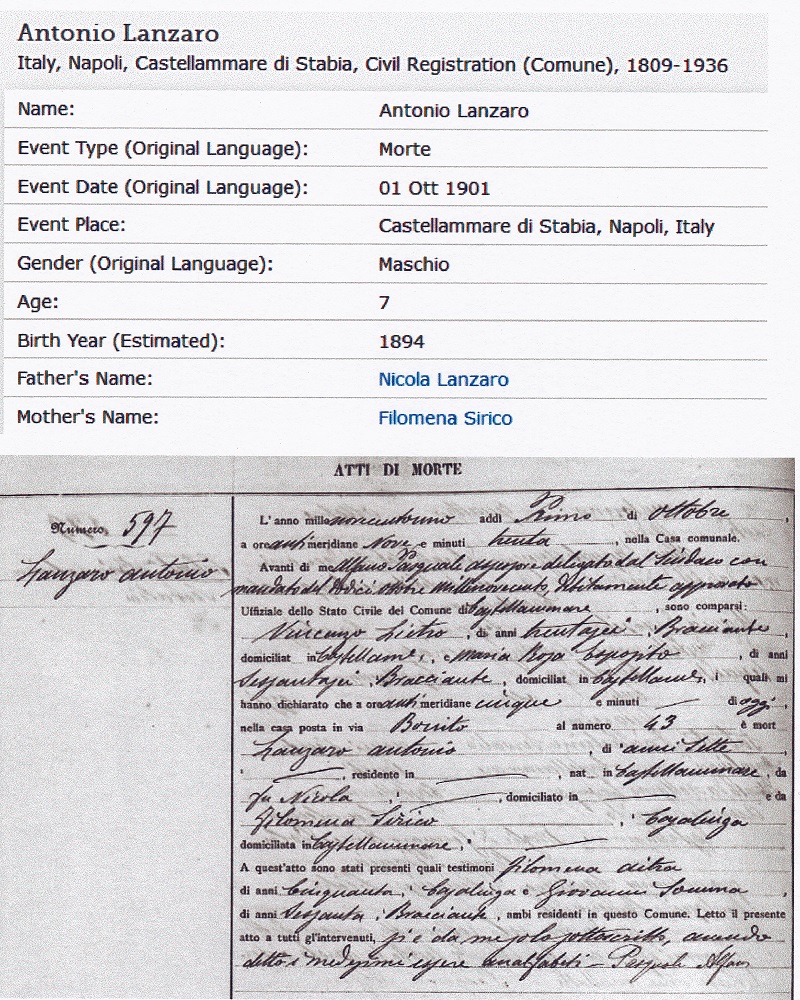 Antonio Lanzaro
Italy, Napoli, Castellammare di Stabia, Civil Registration (Comune), 1809-1936
Name: Antonio Lanzaro
Event Type (Original Language): Morte
Event Date (Original Language): 01 Ott 1901
Event Place: Castellammare di Stabia, Napoli, Italy
Gender (Original Language): Maschio
Age: 7
Birth Year (Estimated): 1894
Father's Name: Nicola Lanzaro
Mother's Name: Filomena Sirico
ATTI DI MORTE
Numero, 597
Lanzaro antonio
L'anno millenovecentouno addì Primo di ottobre,
a ore antimeridiane Nove e minuti trenta, nella Casa comunale.
Avanti di me Alfano Pasquale assessore delegato dal Sindaco con
mandato del millenovecento, debitamente approvato
Uffiziale dello Stato Civile del Comune di Castellammare, sono comparsi:
Vincenzo, di anni trentasei, Bracciante,
domiciliat in Castellam, e Maria Rosa Esposito, di anni
Sessantasei, Bracciante, domiciliat in Castellam, i quali mi
hanno dichiarato che a ore antimeridiane cinque e minuti — di oggi,
nella casa posta in via Bonito al numero 43 è mort
Lanzaro antonio, di anni sette
, residente in —, nat in Castellammare, da
fu Nicola, —, domiciliato in — e da
Filomena Sirico, Casalinga
domiciliata in Castellammare,
A quest'atto sono stati presenti quali testimoni Filomena
di anni Cinquanta, Casalinga e Giovanni Somma,
di anni Sessanta, Bracciante, ambi residenti in questo Comune. Letto il presente
atto a tutti gl'intervenuti, si è da me solo sottoscritto, avendo
detto i medesimi essere analfabeti - Pasquale Alfano